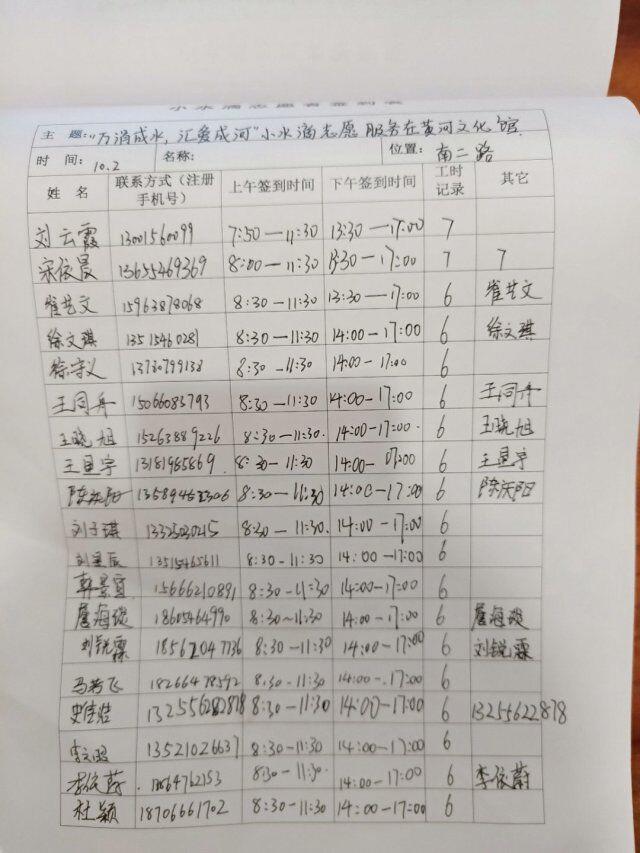 主 题:"万涓成水,汇爱成河"小水滴志愿服务在黄河文化馆.
时 间: 10.2 名称: 位置: 南二路
姓 名 联系方式(注册手机号) 上午签到时间 下午签到时间 工时记录 其它
刘云霞 13001560099 7:50—11:30 13:30—17:00 7
宋依晨 13655469369 8:00—11:30 13:30—17:00 7 7
崔艺文 15963878068 8:30-11:30 13:30—17:00 6 崔艺文
徐文琪 13515460281 8:30-11:30 14:00-17:00 6 徐文琪
徐守义 13730799138 8:30-11:30 14:00-17:00 6
王同舟 15066083793 8:30-11:30 14:00-17:00 6 王同舟
王晓旭 15263889226 8:30-11:30. 14:00-17:00. 6 王晓旭
王显宇 13181985869. 8:30-11:30 14:00-17:00 6 王显宇
陈庆阳 8:30-11:30 14:00-17:00 6 陈庆阳
刘子琪 8:30-11:30. 14:00-17:00 6
刘星辰 13515465611 8:30-11:30 14:00-17:00 6
郭景宜 15666210891 8:30-11:30 14:00-17:00 6
詹海璇 18605464990 8:30-11:30 14:00-17:00 6 詹海璇
刘锐霖 18562047736 8:30-11:30 14:00-17:00 6 刘锐霖
马若飞 18266478592 8:30-11:30 14:00-17:00 6
8:30-11:30 14:00-17:00 6 13255622878
13521026637 8:30-11:30 14:00-17:00 6
李依蔚. 8:30-11:30. 14:00-17:00 6 李依蔚
杜颖 18706661702 8:30-11:30 14:00-17:00 6